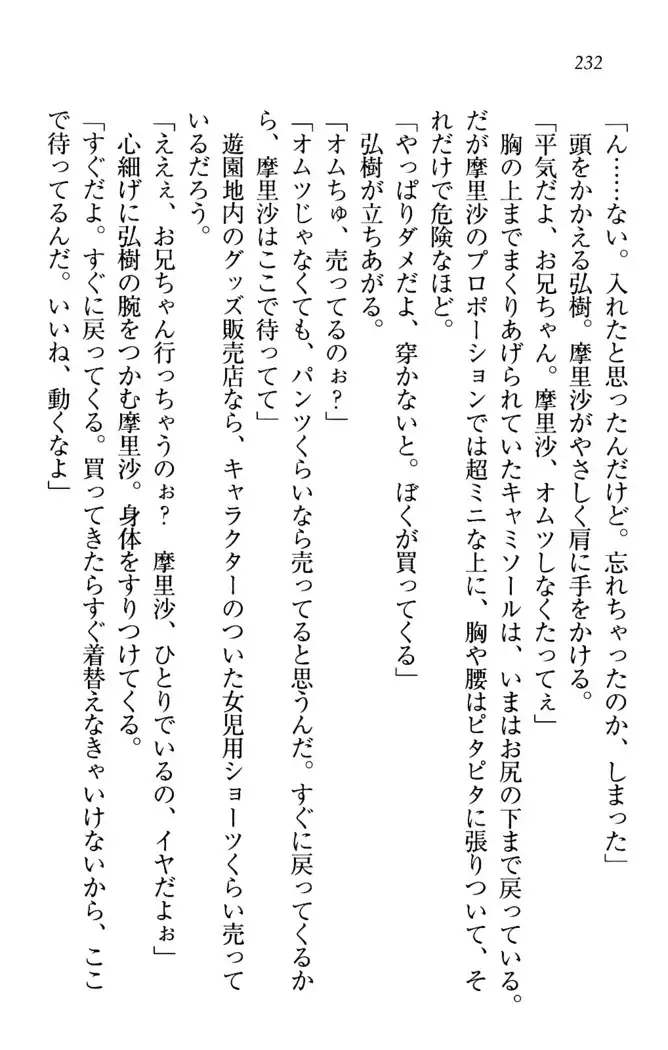 232
「ん……ない。入れたと思ったんだけど。忘れちゃったのか、しまった」
頭をかかえる弘樹。摩里沙がやさしく肩に手をかける。
「平気だよ、お兄ちゃん。摩里沙、オムツしなくたってぇ」
胸の上までまくりあげられていたキャミソールは、いまはお尻の下まで戻っている。
だが摩里沙のプロポーションでは超ミニな上に、胸や腰はピタピタに張りついて、そ
れだけで危険なほど。
「やっぱりダメだよ、穿かないと。ぼくが買ってくる」
弘樹が立ちあがる。
「オムちゅ、売ってるのぉ?」
「オムツじゃなくても、パンツくらいなら売ってると思うんだ。すぐに戻ってくるか
ら、摩里沙はここで待ってて」
遊園地内のグッズ販売店なら、キャラクターのついた女児用ショーツくらい売って
いるだろう。
「えええ、お兄ちゃん行っちゃうのぉ? 摩里沙、ひとりでいるの、イヤだよぉ」
心細げに弘樹の腕をつかむ摩里沙。身体をすりつけてくる。
「すぐだよ。すぐに戻ってくる。買ってきたらすぐ着替えなきゃいけないから、ここ
で待ってるんだ。いいね、動くなよ」